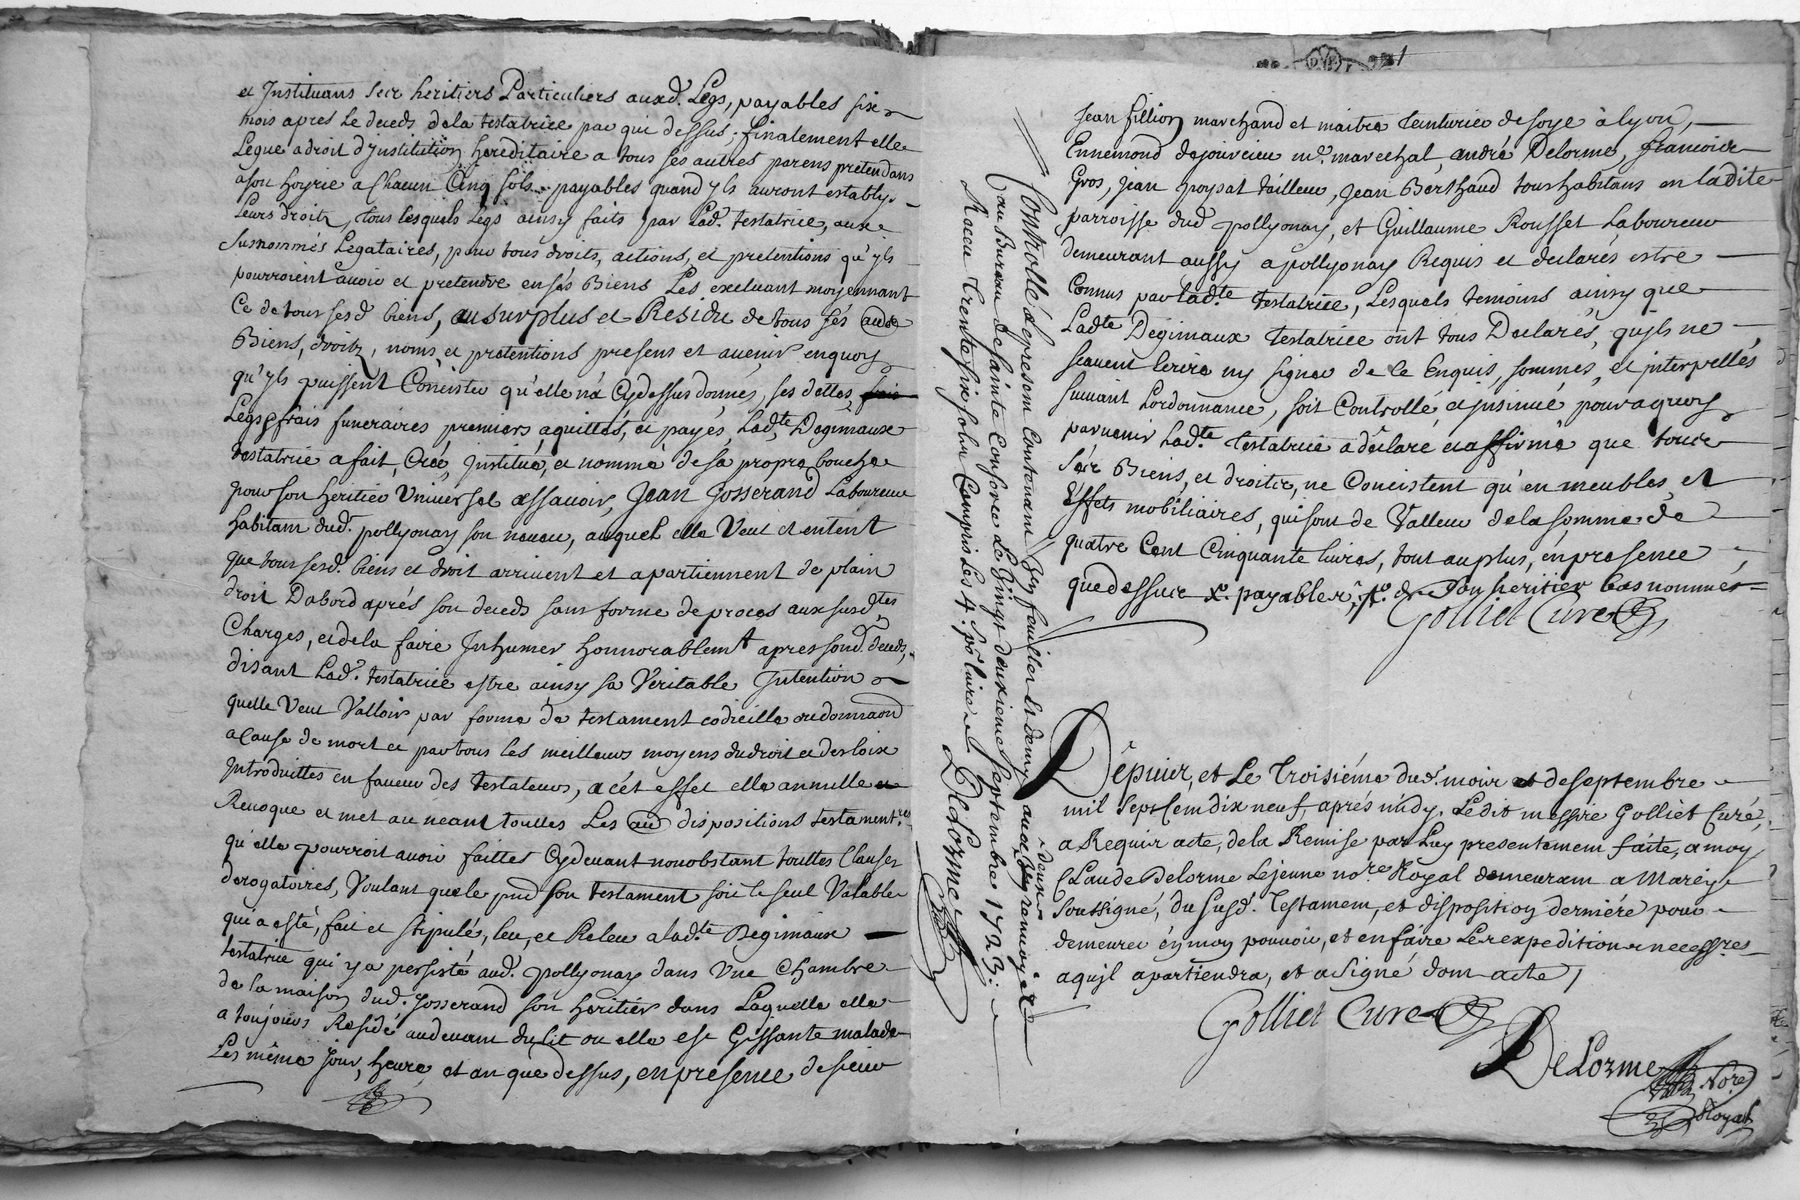 et Instituans ses heritiers Particuliers auxd. Legs, payables six
mois apres le deceds de la testatrice par qui dessus; finalement elle
Legue a droit d'Institution hereditaire a tous ses autres parens pretendans
a son hoyrie a Chacun Cinq sols payables quand yls auront estably
Leurs droits, tous lesquels Legs ainsy faits par Lad. testatrice, aux
susnommés Legataires, pour tous droits, actions, et pretentions qu'yls
pourroient avoir et pretendre en sés Biens Les excluant moyennant
Ce de tous sesd biens, au surplus et Residu de tous sés au
Biens, droitz, noms et pretentions presens et avenir enquoy
qu'yls puissent Concister qu'elle n'a Cydessus donnés, ses dettes,
Legs & frais funeraires premiers aquittés, et payés, Lad.te Degimaux
testatrice a fait, Creé, Institué, et nommé de sa propre bouche
pour son heritier Universel assavoir, Jean Josserand Laboureur
habitant dud. pollyonay son neveu, auquel elle Veut et entent
que tous sesd. biens et droit arrivent et apartiennent de plain
droit Dabord aprés son deceds sans forme de proces aux susd.tes
Charges, et de la faire Inhumer honnorablem.t apres sond. deceds,
disant Lad. testatrice estre ainsy sa Veritable Intention
quelle Veut Valloir par forme de testament codicille ou donnaon
a Cause de mort et par tous les meilleurs moyens du droit et des loix
Introduittes en faveur des testateurs, a cét effet elle annulle
Revoque et met au neant touttes Les au dispositions testament.res
qu'elle pourroit avoir faittes Cydevant nonobstant touttes Clauses
derogatoires, Voulant que le pnt son testament soit le seul Valable
qui a esté, fait et stipulé, leu, et Releu a lad.te Degimaux
testatrice qui y a persisté aud. pollyonay dans Une Chambre
de la maison dud. Josserand son heritier dans Laquelle elle
a toujours Residé audevant du lit ou elle est Gissante malade
Les même Jour, heure, et an que dessus, en presence de sieur
Jean fillion marchand et maitre teinturier de soye à lyon,
Ennemond dejoircieu m.e marechal, andré Delorme, francois
Gros, Jean tailleur, Jean Berthaud tous habitans en ladite
parroisse dud pollyonay, et Guillaume Rousset Laboureur
demeurant aussy a pollyonay Requis et declarés estre
Connus par lad.te testatrice, Lesquels temoins ainsy que
Lad.te Degimaux testatrice ont tous Declarés, qu'yls ne
scavent lecrire ny signer de ce Enquis, sommés, et interpellés
suivant L'ordonnance, soit Controllé et insinué pour a quoy
parvenir Lad.te testatrice a déclaré et affirmé que tous
sés Biens, et droitz, ne Concistent qu'en meubles, et
éffets mobiliaires, qui sont de Valleur de la somme de
quatre Cent Cinquante livres, tout au plus, en presence
que dessus payables son heritier bas nommé
Golliet Curé
Controllé le present Contenant feuillet et demy aud renvoy et
deux
au Bureau de Sainte Consorce Le Vingt deuxieme septembre 1723.
Receu trente six sols Compris les 4. s. p.r livre
Delorme
Dépuis, et Le Troisiéme dud. mois de septembre
mil sept Cent dix neuf, aprés midy. Ledit messire Golliet Curé,
a Requis acte, de la Remise par Luy presentement faite, a moy
Claude Delorme Lejeune no.re Royal demeurant a Marcy
soussigné, du susd. Testament, et disposition derniére pour
demeurer én mon pouvoir, et en faire Les expeditions necess.res
a qu'yl apartiendra, et a signé dont acte,
Golliet Curé
DeLorme No.re
Royal